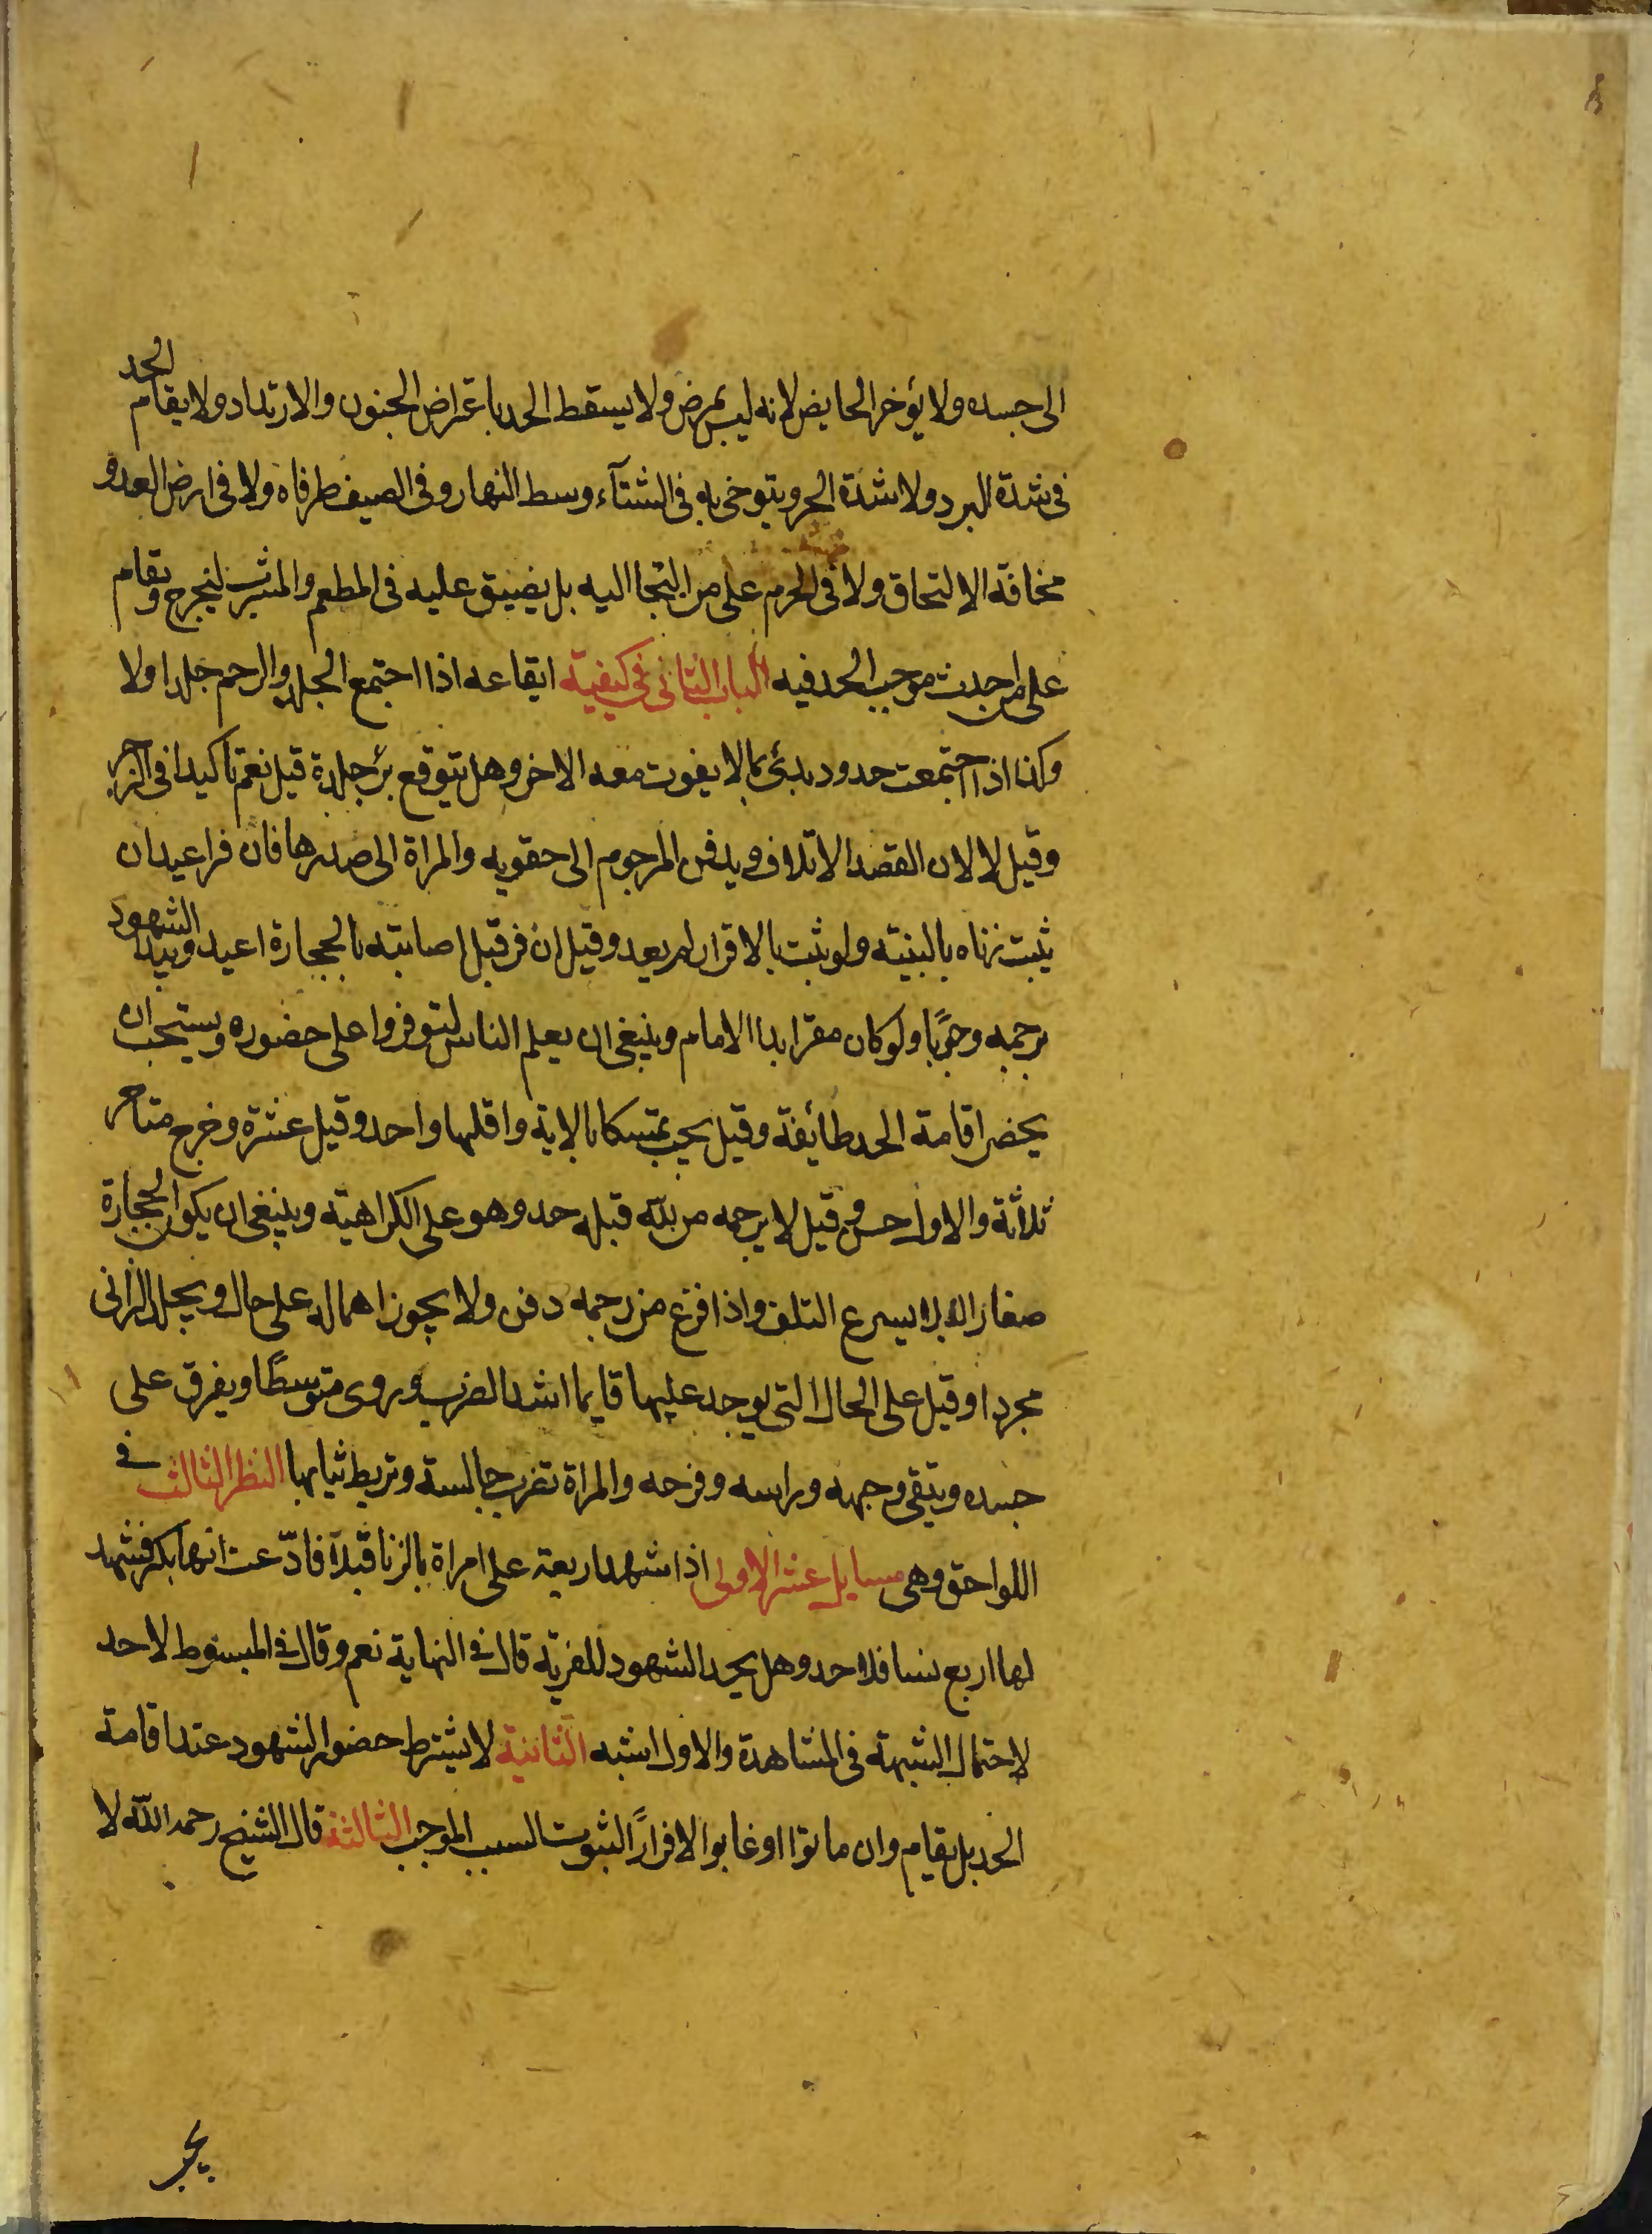 الى جسده ولا يؤخر الحايض لانه ليس بمرض ولا يسقط الحد باعتراض الجنون والارتداد ولا يقام الحد
فى شدة البرد ولا شدة الحر ويتوخى به فى الشتآء وسط النهار وفى الصيف طرفاه ولا فى ارض العدو
مخافة الالتحاق ولا فى الحرم على من التجا اليه بل يضيق عليه فى المطعم والمشرب ليخرج ويقام
على من احدث موجب الحد فيه الباب الثانى فى كيفية ايقاعه اذا اجتمع الجلد والرجم جلد اولا
وكذا اذا اجتمعت حدود بدئ بما لا يفوت معه الاخر وهل يتوقع برء جلده قيل نعم تاكيدا فى الزجر
وقيل لا لان القصد الاتلاف ويدفن المرجوم الى حقويه والمراة الى صدرها فان فر اعيد ان
ثبت زناه بالبينة ولو ثبت بالاقرار لم يعد وقيل ان فر قبل اصابته بالحجارة اعيد ويبدا الشهود
برجمه وجوبًا ولو كان مقرا بدا الامام وينبغى ان يعلم الناس ليتوفروا على حضوره ويستحب ان
يحضر اقامة الحد طائفة وقيل يجب تمسكا بالاية واقلها واحد وقيل عشرة وخرج متاخر
ثلاثة والاول حسن وقيل لا يرجمه من لله قبله حد وهو على الكراهية وينبغى ان يكون الحجارة
صغار لئلا يسرع التلف واذا فرغ من رجمه دفن ولا يجوز اهماله على حال ويجلد الزانى
مجردا وقيل على الحال التى يوجد عليها قايما اشد الضرب وروى متوسطًا ويفرق على
جسده ويتقى وجهه وراسه وفرجه والمراة تضرب جالسة وتربط ثيابها النظر الثالث فى
اللواحق وهى مسايل عشر الاولى اذا شهد اربعة على امراة بالزنا قبلًا فادّعت انها بكر فشهد
لها اربع نسا فلا حد وهل يحد الشهود للفرية قال فى النهاية نعم وقال فى المبسوط لا حد
لاحتمال الشبهة فى المشاهدة والاول اشبه الثانية لا يشترط حضور الشهود عند اقامة
الحد بل يقام وان ماتوا او غابوا لا فرارًا لثبوت السبب الموجب الثالثة قال الشيخ رحمه الله لا
يجب